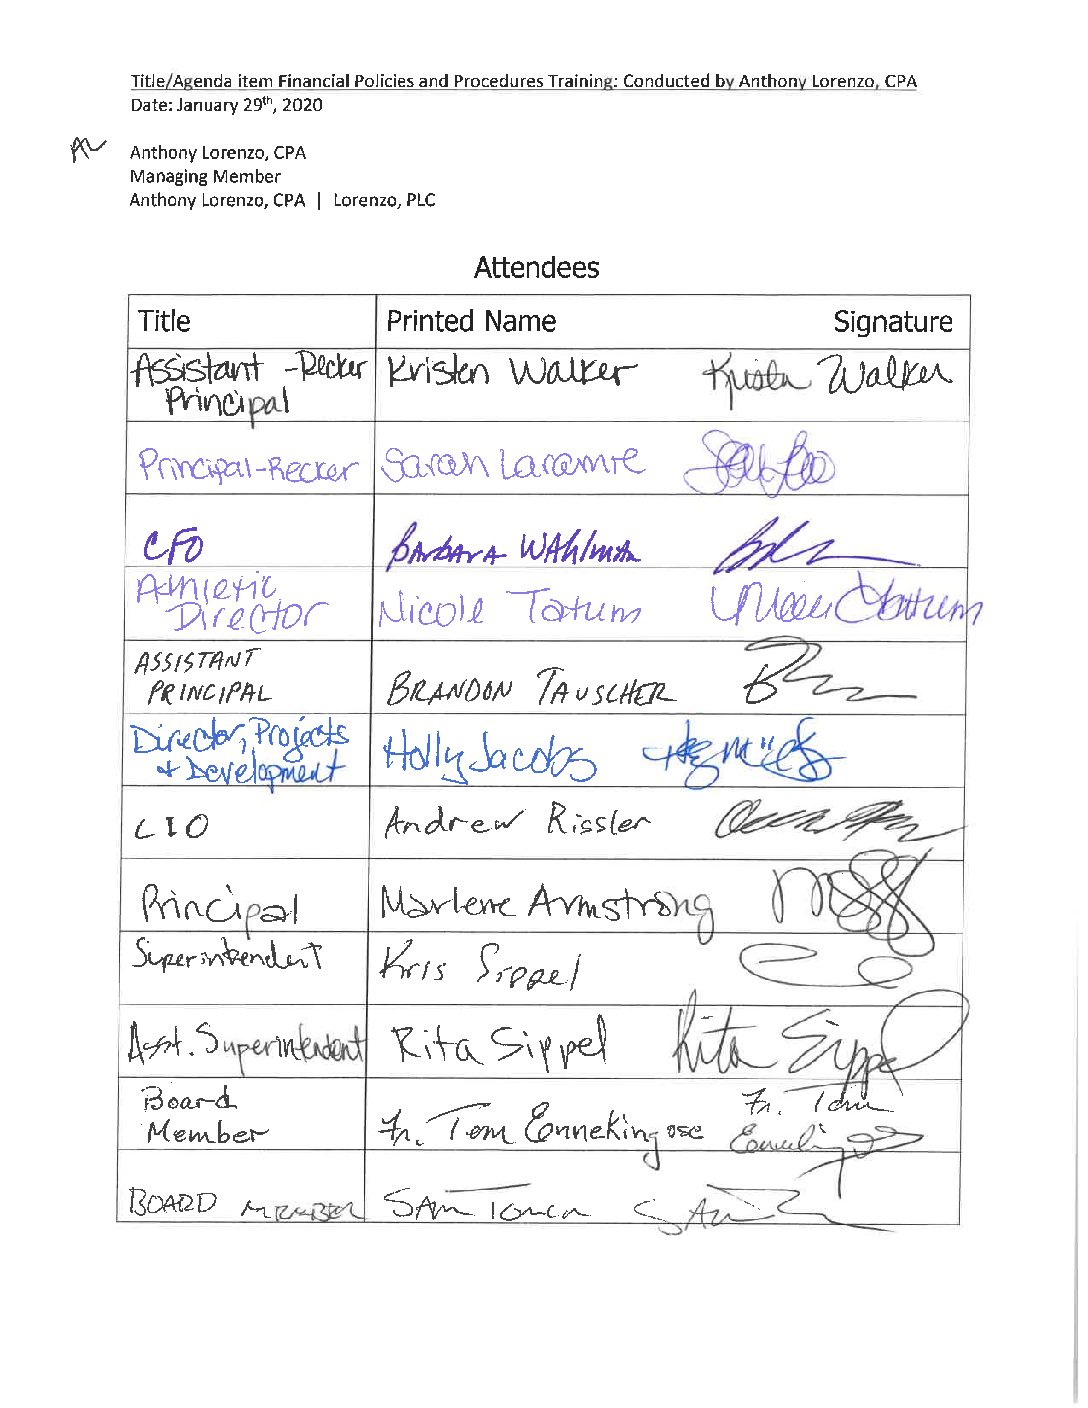 Title/Agenda item Financial Policies and Procedures Training: Conducted by Anthony Lorenzo, CPA
Date: January 29th, 2020
AL
Anthony Lorenzo, CPA
Managing Member
Anthony Lorenzo, CPA | Lorenzo, PLC
Attendees
Title Printed Name Signature
Assistant - Recker Kristen Walker Kristen Walker
Principal
Principal-Recker Sarah Laramie
CFO BARBARA WAHlman
Athletic
Director Nicole Tatum
ASSISTANT
PRINCIPAL BRANDON TAUSCHER
Director, Projects
+ Development Holly Jacobs
CIO Andrew Rissler
Principal Marlene Armstrong
Superintendent Kris Sippel
Asst. Superintendent Rita Sippel Rita Sippel
Board Fr. Tom
Member Fr. Tom Enneking osc
BOARD MEMBER SAM